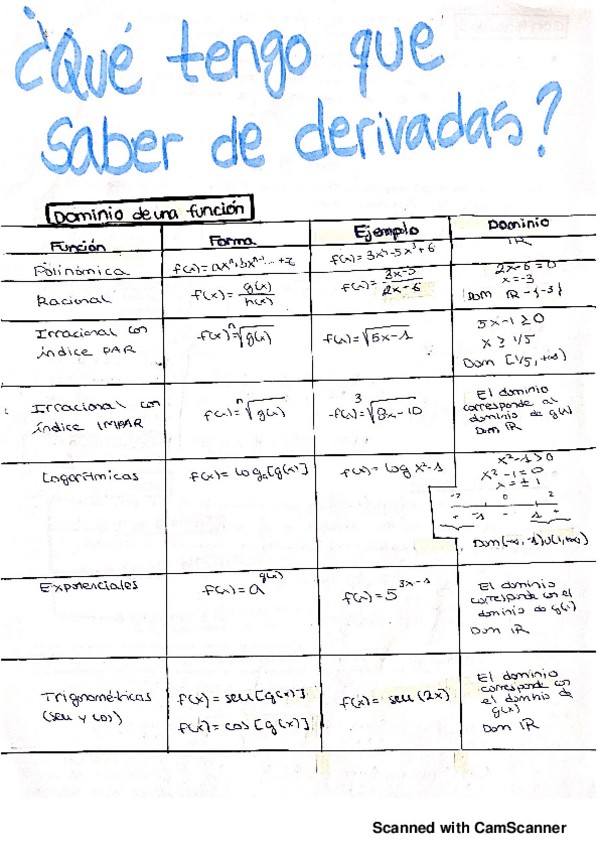 ¿Qué tengo que
saber de derivadas?
Dominio de una función
Función Forma Ejemplo Dominio
Polinómica f(x)= axⁿ+bxⁿ⁻¹...+z f(x)= 3x⁴-5x³+6 IR
Racional f(x)= g(x)/h(x) f(x)= 3x-5/2x-6 2x-6=0
x=-3
Dom IR-{-3}
Irracional con
índice PAR
f(x)=ⁿ√g(x)
f(x)=√5x-1
5x-1≥0
x≥1/5
Dom [1/5,+∞)
Irracional con
índice IMPAR
f(x)=ⁿ√g(x)
f(x)=³√8x-10
El dominio
corresponde al
dominio de g(x)
Dom IR
Logarítmicas
f(x)= logₐ[g(x)]
f(x)= log x²-1
x²-1>0
x²-1=0
x=±1
-2 0 2
+ -1 - 1 +
Dom(-∞,-1)U(1,+∞)
Exponenciales
f(x)= a^g(x)
f(x)= 5^3x-1
El dominio
corresponde con el
dominio de g(x)
Dom IR
Trigonométricas
(sen y cos)
f(x)= sen[g(x)]
f(x)= cos[g(x)]
f(x)= sen(2x)
El dominio
corresponde con
el dominio de
g(x)
Dom IR
Scanned with CamScanner